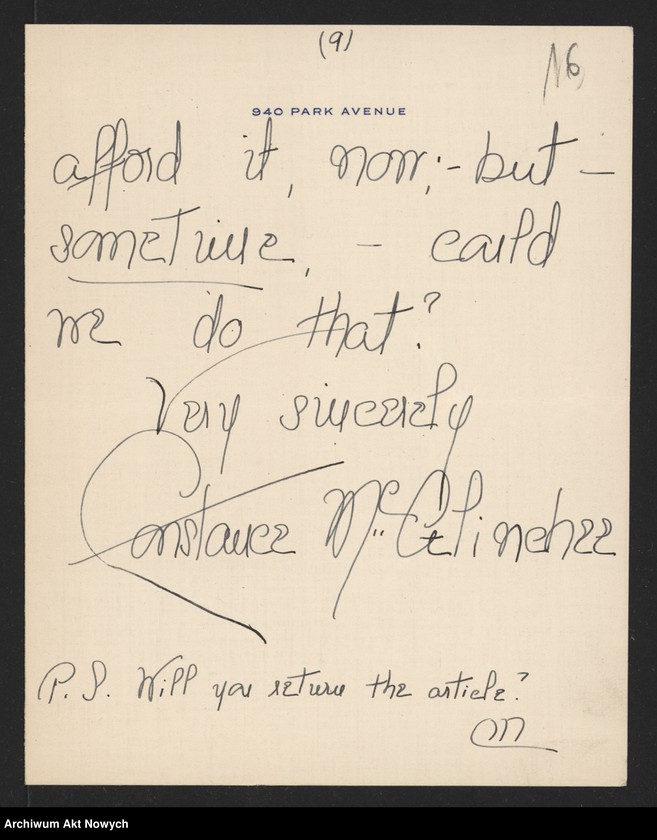 (9)
16
940 PARK AVENUE
afford it, now;- but -
sometime, - could
we do that?
Very sincerely
Constance McClinchee
P. S. Will you return the article?
M
Archiwum Akt Nowych